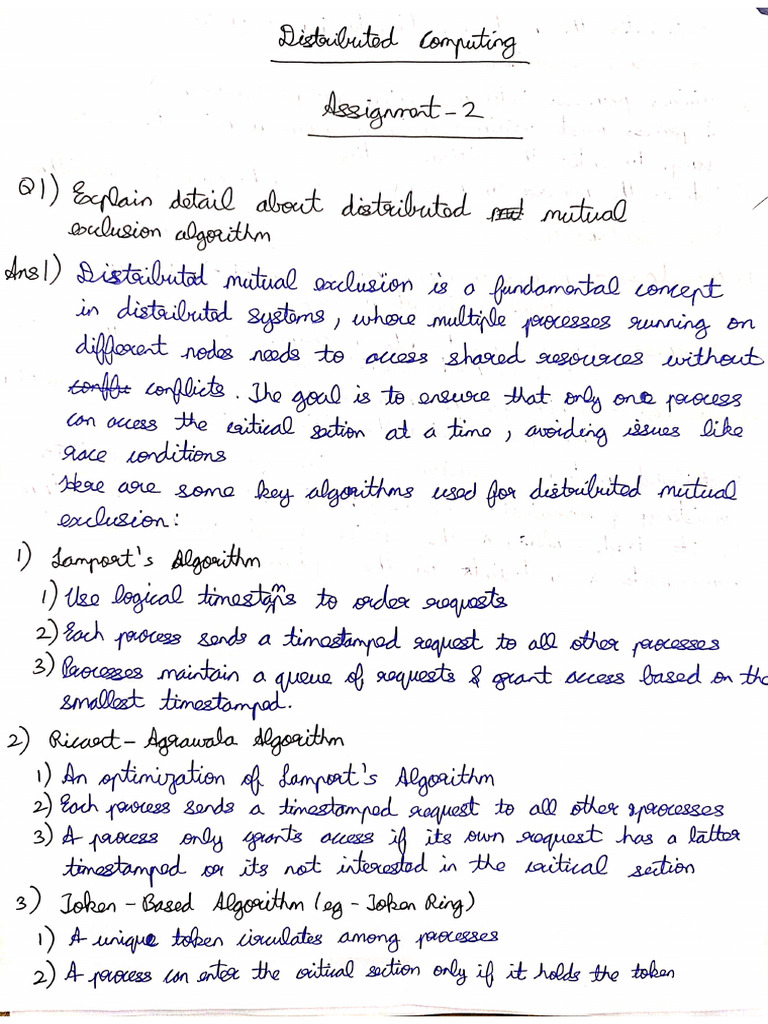 Distributed Computing
Assignment-2
Q1) Explain detail about distributed mutual
exclusion algorithm
Ans1) Distributed mutual exclusion is a fundamental concept
in distributed systems, where multiple processes running on
different nodes needs to access shared resources without
conflicts. The goal is to ensure that only one process
can access the critical section at a time, avoiding issues like
race conditions
Here are some key algorithms used for distributed mutual
exclusion:
1) Lamport's Algorithm
1) Use logical timestamps to order requests
2) Each process sends a timestamped request to all other processes
3) Processes maintain a queue of requests & grant access based on the
smallest timestamped.
2) Ricart-Agrawala Algorithm
1) An optimization of Lamport's Algorithm
2) Each process sends a timestamped request to all other processes
3) A process only grants access if its own request has a latter
timestamped or its not interested in the critical section
3) Token-Based Algorithm (eg - Token Ring)
1) A unique token circulates among processes
2) A process can enter the critical section only if it holds the token